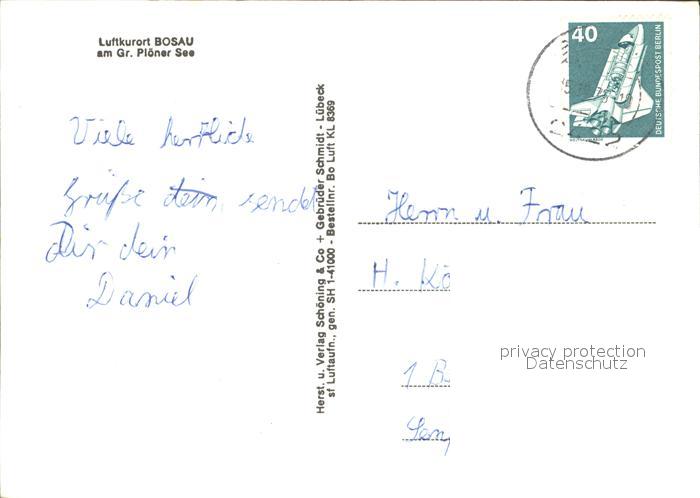 Luftkurort BOSAU
am Gr. Plöner See
Viele herzliche
Grüße dein, sendet
Dir dein
Daniel
Herst. u. Verlag Schöning & Co + Gebrüder Schmidt - Lübeck
sf Luftaufn., gen. SH 1-41000 - Bestellnr. Bo Luft KL 8369
40
DEUTSCHE BUNDESPOST BERLIN
Herrn u. Frau
H. Kö
1 B
privacy protection
Datenschutz